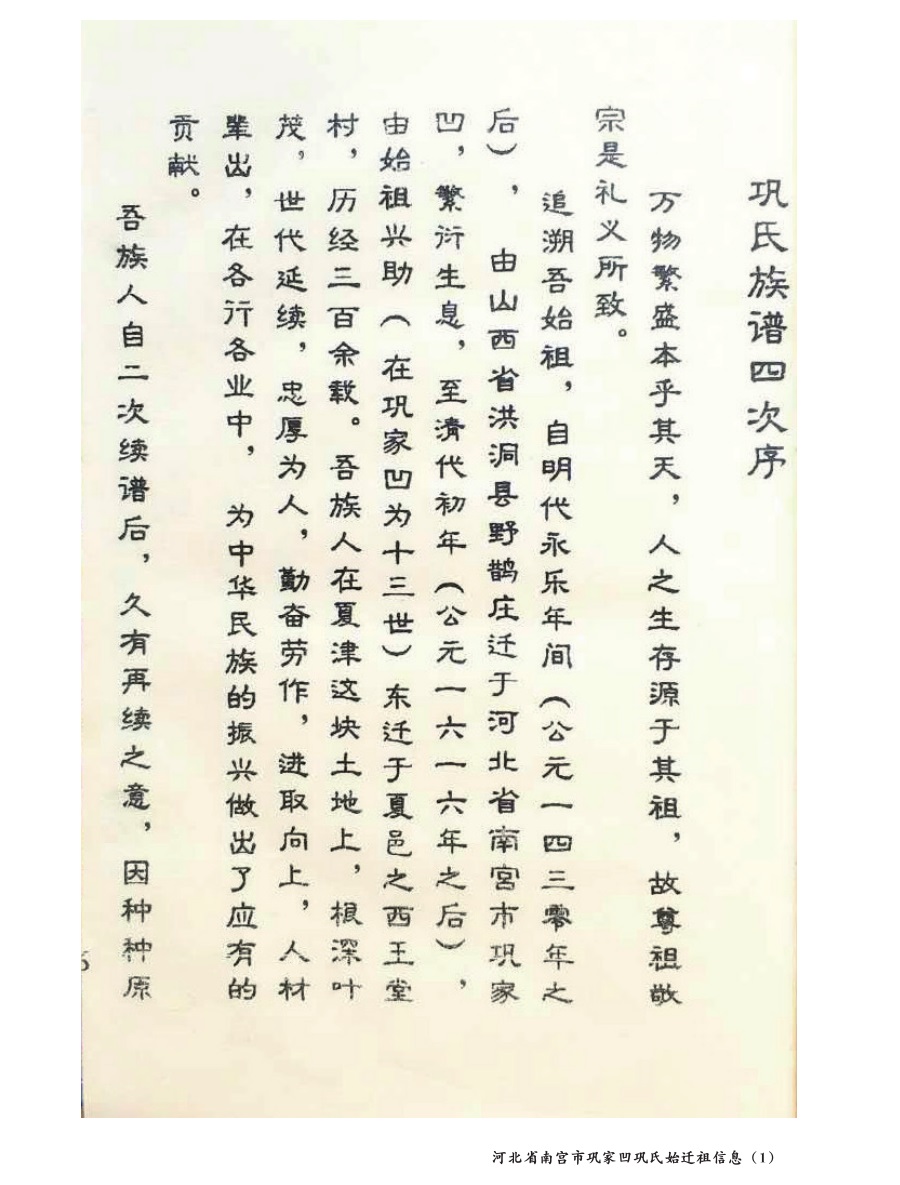 巩氏族谱四次序
万物繁盛本乎其天，人之生存源于其祖，故尊祖敬
宗是礼义所致。
追溯吾始祖，自明代永乐年间（公元一四三零年之
后），由山西省洪洞县野鹊庄迁于河北省南宫市巩家
凹，繁衍生息，至清代初年（公元一六一六年之后），
由始祖兴助（在巩家凹为十三世）东迁于夏邑之西王堂
村，历经三百余载。吾族人在夏津这块土地上，根深叶
茂，世代延续，忠厚为人，勤奋劳作，进取向上，人材
辈出，在各行各业中，为中华民族的振兴做出了应有的
贡献。
吾族人自二次续谱后，久有再续之意，因种种原
河北省南宫市巩家凹巩氏始迁祖信息（1）